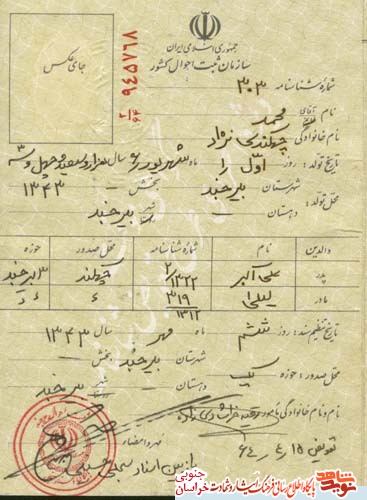 جمهوری اسلامی ایران
سازمان ثبت احوال کشور
جای عکس
۹۴۵۷۶۸
۲/۶۴
شماره شناسنامه ۳۰۳
نام آقای محمد
نام خانوادگی چهکندی نژاد
تاریخ تولد: روز اول ماه شهریور سال هزار و سیصد و چهل و سه
۱۳۴۳
محل تولد: شهرستان بیرجند بخش -
دهستان - شهر بیرجند
والدین نام شماره شناسنامه محل صدور حوزه
پدر علی اکبر چهکند ۳ بیرجند
مادر لیلا ۳۱۹ ۱۳۱۲ ء ء
تاریخ تنظیم سند: روز ششم ماه مهر سال ۱۳۴۳
محل صدور: حوزه یک شهرستان بیرجند بخش -
دهستان شهر بیرجند
نام و نام خانوادگی مامور
مهر و امضاء
۱۵ ر ۴ ر ۶۴
نوید شاهد
پایگاه اطلاع رسانی فرهنگ ایثار و شهادت خراسان جنوبی